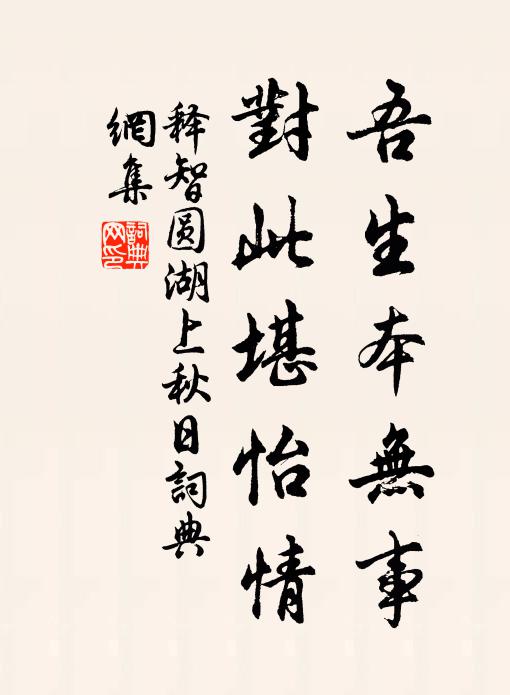 吾生本無事
對此堪怡情
释智圆湖上秋日詞典
網集
詞典
网印